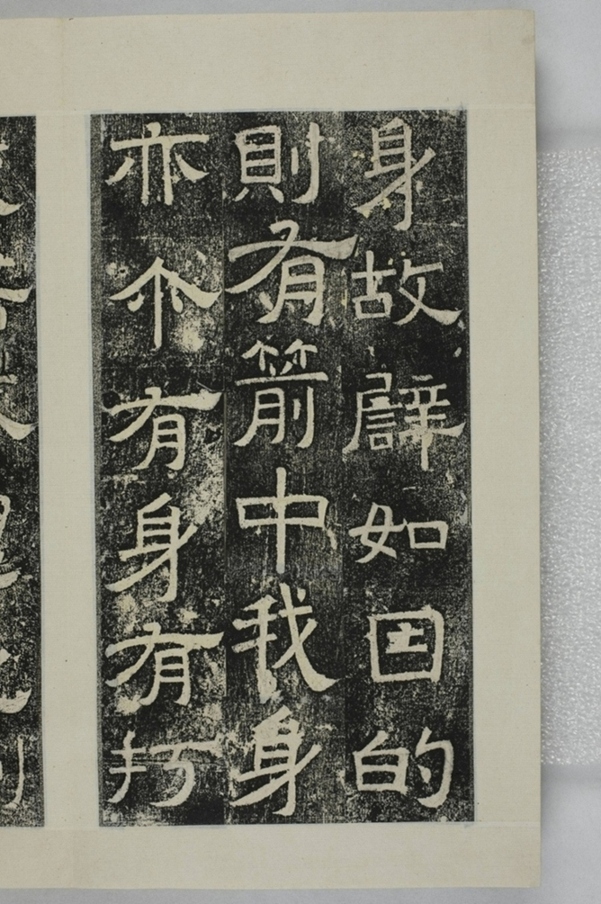 身故辟如因的
則有箭中我身
亦尒有身有打